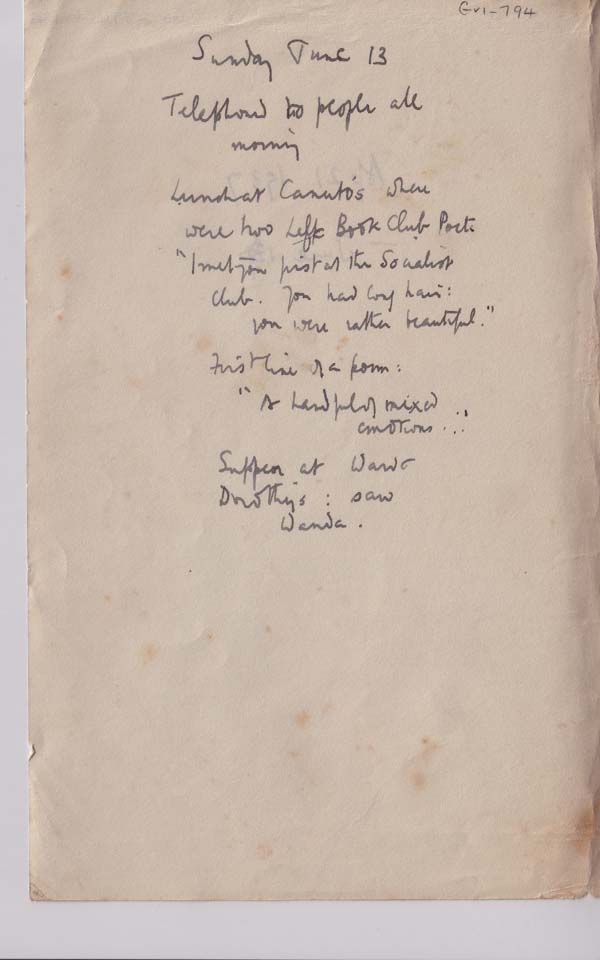 Gri-794
Sunday June 13
Telephoned to people all
morning
Lunch at Canuto's where
were two Left Book Club Poets
"I met you first at the Socialist
Club. You had long hair:
you were rather beautiful."
First line of a poem:
"A handful of mixed
emotions...
Supper at
Dorothy's : saw
Wanda.